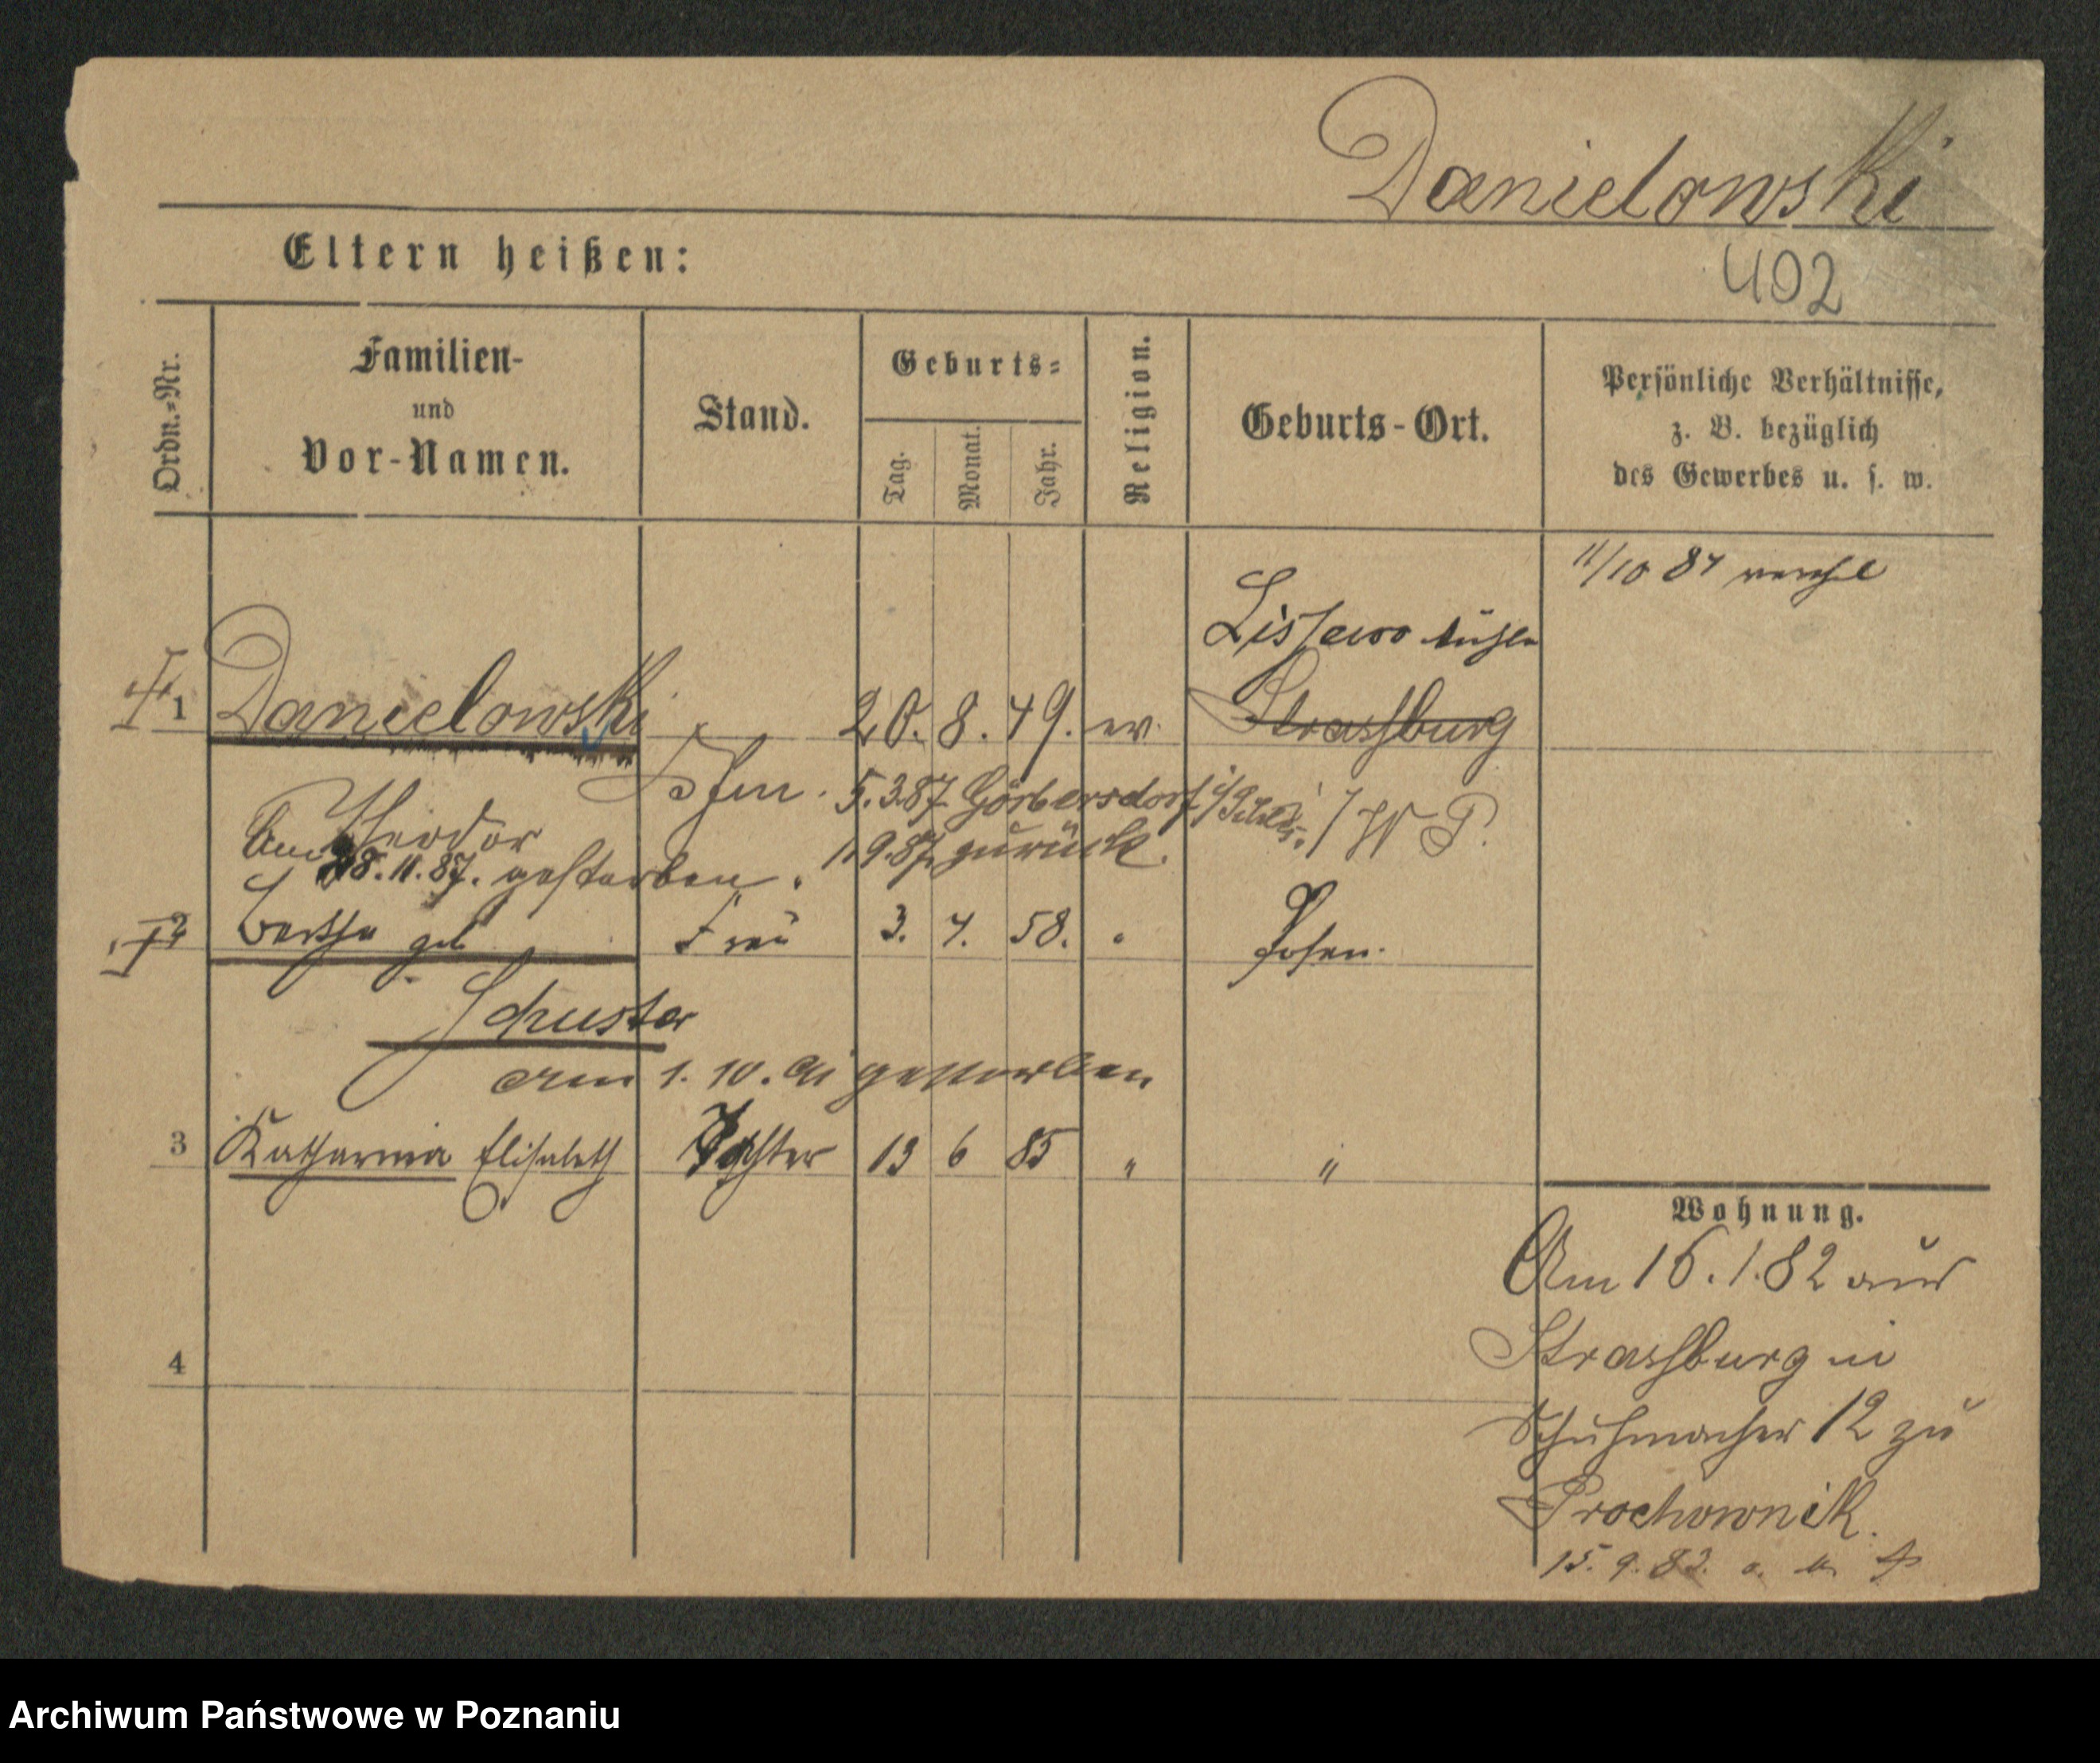 Danielowski
Eltern heißen:
402
Ordn.=Nr.
Familien-
und
Vor-Namen.
Stand.
Geburts=
Tag.
Monat.
Jahr.
Religion.
Geburts-Ort.
Persönliche Verhältnisse,
z. B. bezüglich
des Gewerbes u. s. w.
11/10 84
1 Danielowski 20. 8. 49. ev. Strassburg
5.3.87 Görbersdorf i/Schles. / W P.
Theodor
Am 28.11.87. gestorben. 1.9.87. zurück.
2 Bertha geb Frau 3. 4. 58. Posen.
Schuster
am 1. 10. gestorben
3 Katharina Elisabeth Tochter 13 6 85 " "
Wohnung.
Am 16.1.82 aus
Strassburg in
4
Schuhmacher 12 zu
Prochownik.
15. 9. 83.
Archiwum Państwowe w Poznaniu